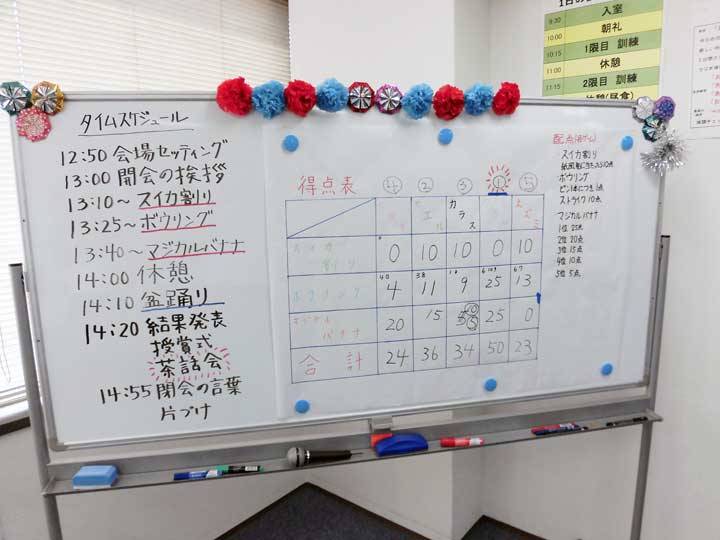 タイムスケジュール
12:50 会場セッティング
13:00 開会の挨拶
13:10～ スイカ割り
13:25～ ボウリング
13:40～ マジカルバナナ
14:00 休憩
14:10 盆踊り
14:20 結果発表
授賞式
茶話会
14:55 閉会の言葉
片づけ
得点表 ④ ② ③ ① ⑤
カラス
スイカ割り 0 10 10 0 10
ボウリング 4 11 9 25 13
マジカルバナナ 20 15 25 0
合計 24 36 34 50 23
スイカ割り
ボウリング
ピン1本につき1点
ストライク 10点
マジカルバナナ
1位 25点
2位 20点
3位 15点
4位 10点
5位 5点
9:30 入室
10:00 朝礼
10:15 1限目 訓練
11:00 休憩
11:15 2限目 訓練